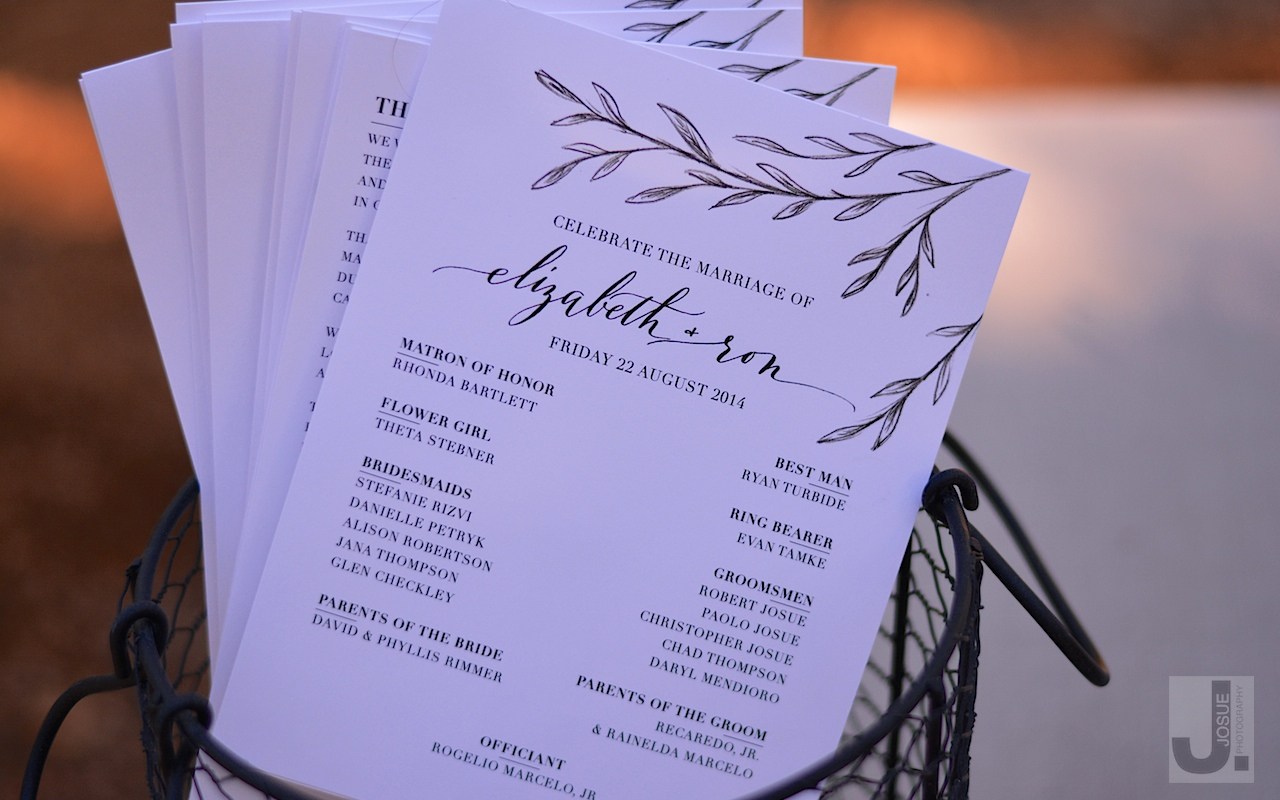 CELEBRATE THE MARRIAGE OF
elizabeth + ron
FRIDAY 22 AUGUST 2014
MATRON OF HONOR
RHONDA BARTLETT
FLOWER GIRL
THETA STEBNER
BRIDESMAIDS
STEFANIE RIZVI
DANIELLE PETRYK
ALISON ROBERTSON
JANA THOMPSON
GLEN CHECKLEY
PARENTS OF THE BRIDE
DAVID & PHYLLIS RIMMER
BEST MAN
RYAN TURBIDE
RING BEARER
EVAN TAMKE
GROOMSMEN
ROBERT JOSUE
PAOLO JOSUE
CHRISTOPHER JOSUE
CHAD THOMPSON
DARYL MENDIORO
PARENTS OF THE GROOM
RECAREDO, JR.
& RAINELDA MARCELO
OFFICIANT
ROGELIO MARCELO, JR
THE
AND
J.
JOSUE
PHOTOGRAPHY